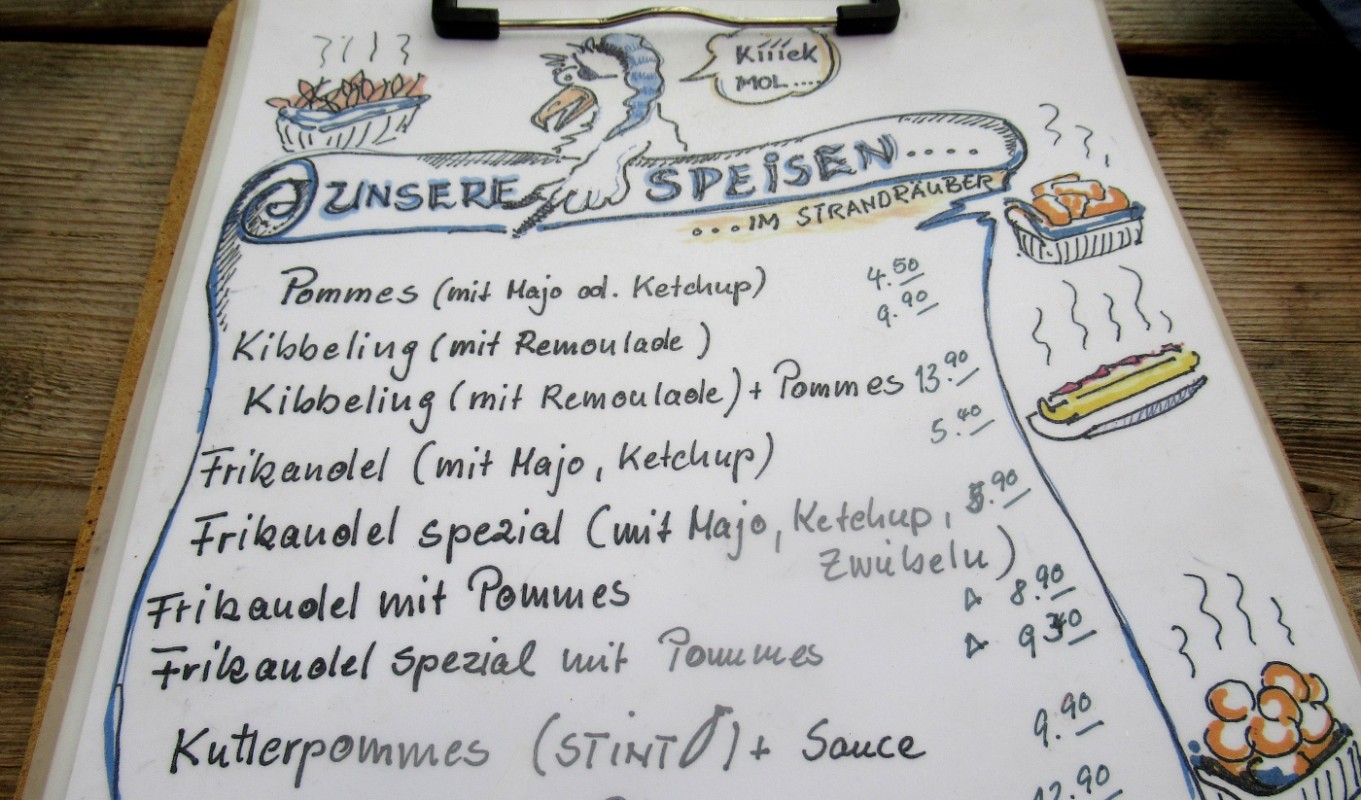 Kiiiek
MOL....
UNSERE SPEISEN....
...IM STRANDRÄUBER
Pommes (mit Majo od. Ketchup) 4.50
Kibbeling (mit Remoulade) 9.90
Kibbeling (mit Remoulade) + Pommes 13.90
Frikandel (mit Majo, Ketchup) 5.40
Frikandel spezial (mit Majo, Ketchup, 5.90
Zwiebeln)
Frikandel mit Pommes 8.90
Frikandel spezial mit Pommes 9.40
Kutterpommes (STINT) + Sauce 9.90
12.90